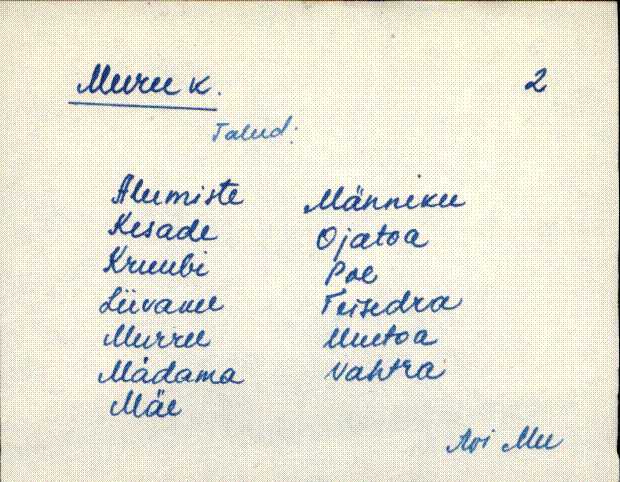 Muru k.
2
Talud:
Alumiste
Kesade
Kruubi
Liivanu
Murru
Madama
Mäe
Männiku
Ojatoa
Poe
Teisedra
Uuetoa
Vahtra